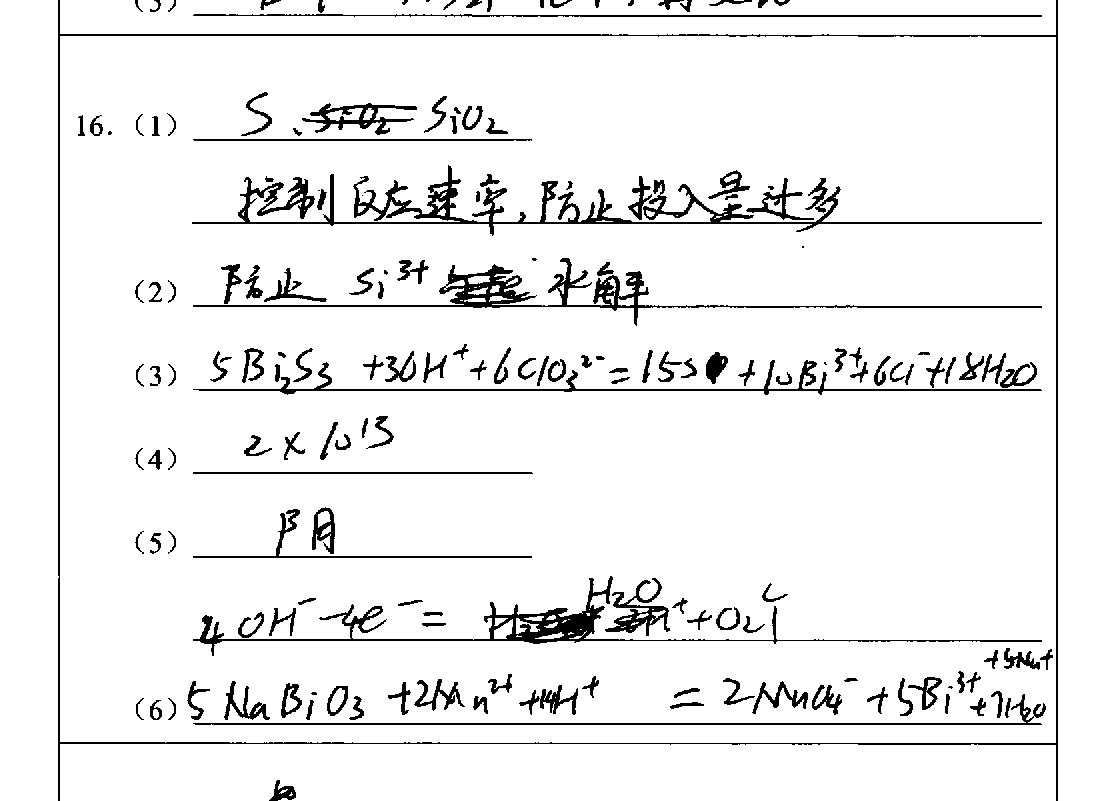 16.（1） S、SiO₂ SiO₂
控制反应速率,防止投入量过多
（2）防止 Si³⁺ 水解
（3）5Bi₂S₃ +36H⁺+6ClO₃²⁻=15S+10Bi³⁺+6Cl⁻+18H₂O
（4）2×10¹³
（5）阴
4OH⁻-4e⁻= H₂O +O₂↑
（6）5NaBiO₃ +2Mn²⁺+14H⁺ = 2MnO₄⁻+5Bi³⁺+7H₂O +5Na⁺